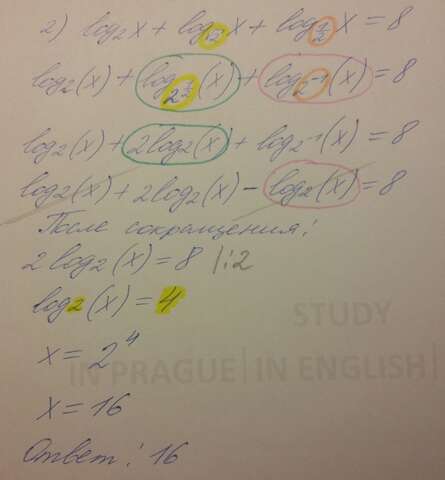 2) log₂x + log_√2 x + log_½ x = 8
log₂(x) + log_2^½ (x) + log_2⁻¹ (x) = 8
log₂(x) + 2log₂(x) + log_2⁻¹ (x) = 8
log₂(x) + 2log₂(x) - log₂(x) = 8
После сокращения:
2log₂(x) = 8 |:2
log₂(x) = 4
x = 2⁴
STUDY
IN PRAGUE | IN ENGLISH |
x = 16
Ответ: 16